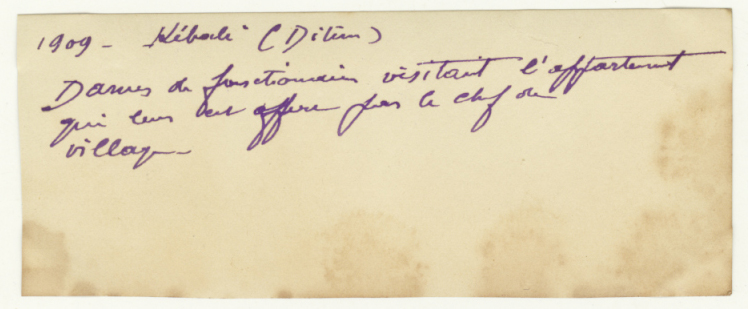 1909 - Kébali (Ditinn)
Dames de fonctionnaires visitant l'appartement
qui leur est offert par le chef de
village -